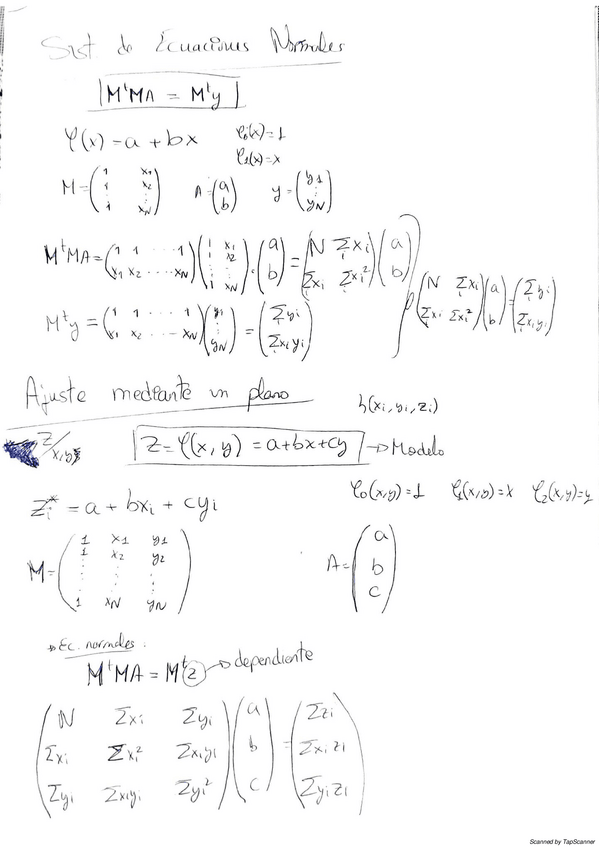 Sist de Ecuaciones Normales
MᵗMA = Mᵗy
φ(x) = a + bx φ₀(x)=1
φ₁(x)=x
M = (1 x₁; 1 x₂; ⋮ ⋮; 1 x_N) A = (a; b) y = (y₁; ⋮; y_N)
MᵗMA = (1 1 ⋯ 1; x₁ x₂ ⋯ x_N)(1 x₁; 1 x₂; ⋮ ⋮; 1 x_N)·(a; b) = (N Σxᵢ; Σxᵢ Σxᵢ²)(a; b)
(N Σxᵢ; Σxᵢ Σxᵢ²)(a; b) = (Σyᵢ; Σxᵢyᵢ)
Mᵗy = (1 1 ⋯ 1; x₁ x₂ ⋯ x_N)(y₁; ⋮; y_N) = (Σyᵢ; Σxᵢyᵢ)
Ajuste mediante un plano
(xᵢ, yᵢ, zᵢ)
Z/x,y
Z = φ(x,y) = a+bx+cy → Modelo
φ₀(x,y)=1 φ₁(x,y)=x φ₂(x,y)=y
zᵢ* = a + bxᵢ + cyᵢ
M = (1 x₁ y₁; 1 x₂ y₂; ⋮ ⋮ ⋮; 1 x_N y_N) A = (a; b; c)
→ Ec. normales:
MᵗMA = Mᵗz → dependiente
(N Σxᵢ Σyᵢ; Σxᵢ Σxᵢ² Σxᵢyᵢ; Σyᵢ Σxᵢyᵢ Σyᵢ²)(a; b; c) = (Σzᵢ; Σxᵢzᵢ; Σyᵢzᵢ)
Scanned by TapScanner